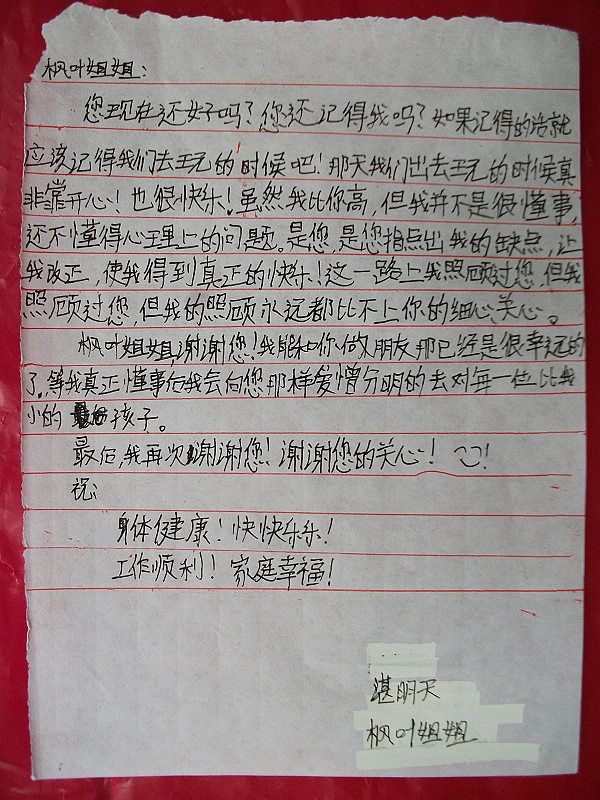 枫叶姐姐:
您现在还好吗?您还记得我吗?如果记得的话就
应该记得我们去玩的时候吧!那天我们出去玩的时候真
非常开心!也很快乐!虽然我比你高,但我并不是很懂事,
还不懂得心理上的问题。是您,是您指点出我的缺点,让
我改正,使我得到真正的快乐!这一路上我照顾过您,但我
照顾过您,但我的照顾永远都比不上你的细心、关心。
枫叶姐姐谢谢您!我能和你做朋友那已经是很幸运的
了。等我真正懂事后我会向您那样爱憎分明的去对每一位比我
小的孩子。
最后,我再次谢谢您!谢谢您的关心!
祝:
身体健康!快快乐乐!
工作顺利!家庭幸福!
湛明天
枫叶姐姐